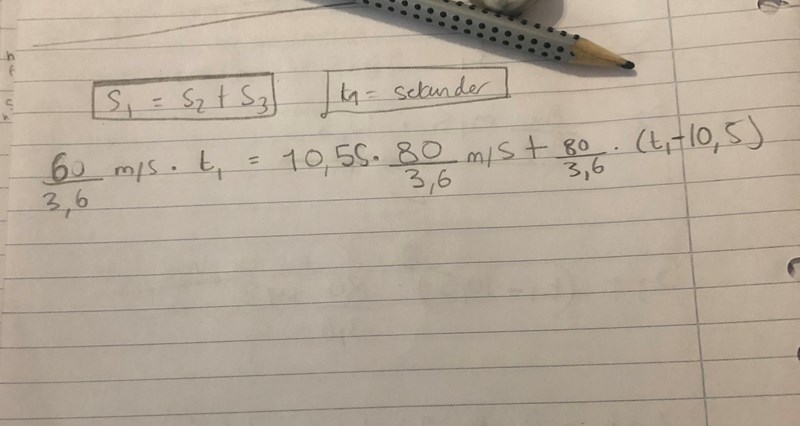 S₁ = S₂ + S₃ t₁ = sekunder
60/3,6 m/s · t₁ = 10,5s · 80/3,6 m/s + 80/3,6 · (t₁-10,5)